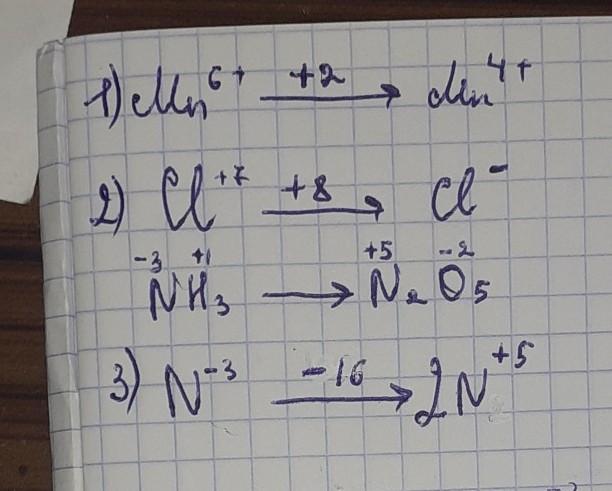 1) Mn⁶⁺ +2 → Mn⁴⁺
2) Cl⁺⁷ +8 → Cl⁻
-3 +1 +5 -2
NH₃ → N₂O₅
3) N⁻³ -16 → 2N⁺⁵